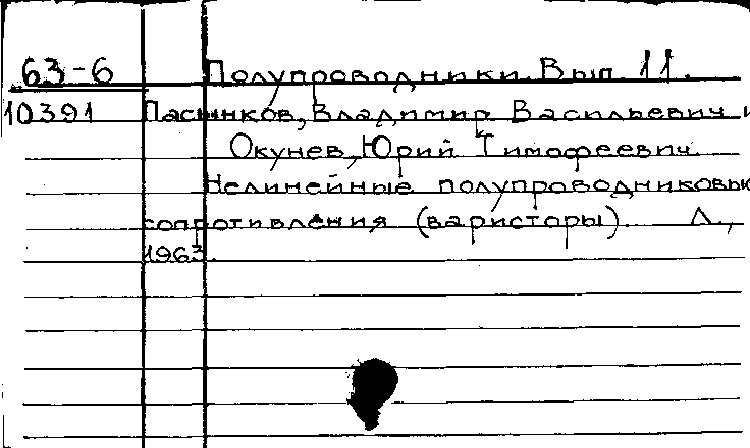 63-6 Полупроводники. Вып. 11.
10391 Пасынков, Владимир Васильевич и
Окунев, Юрий Тимофеевич
Нелинейные полупроводниковы
сопротивления (варисторы). Л.,
1963.